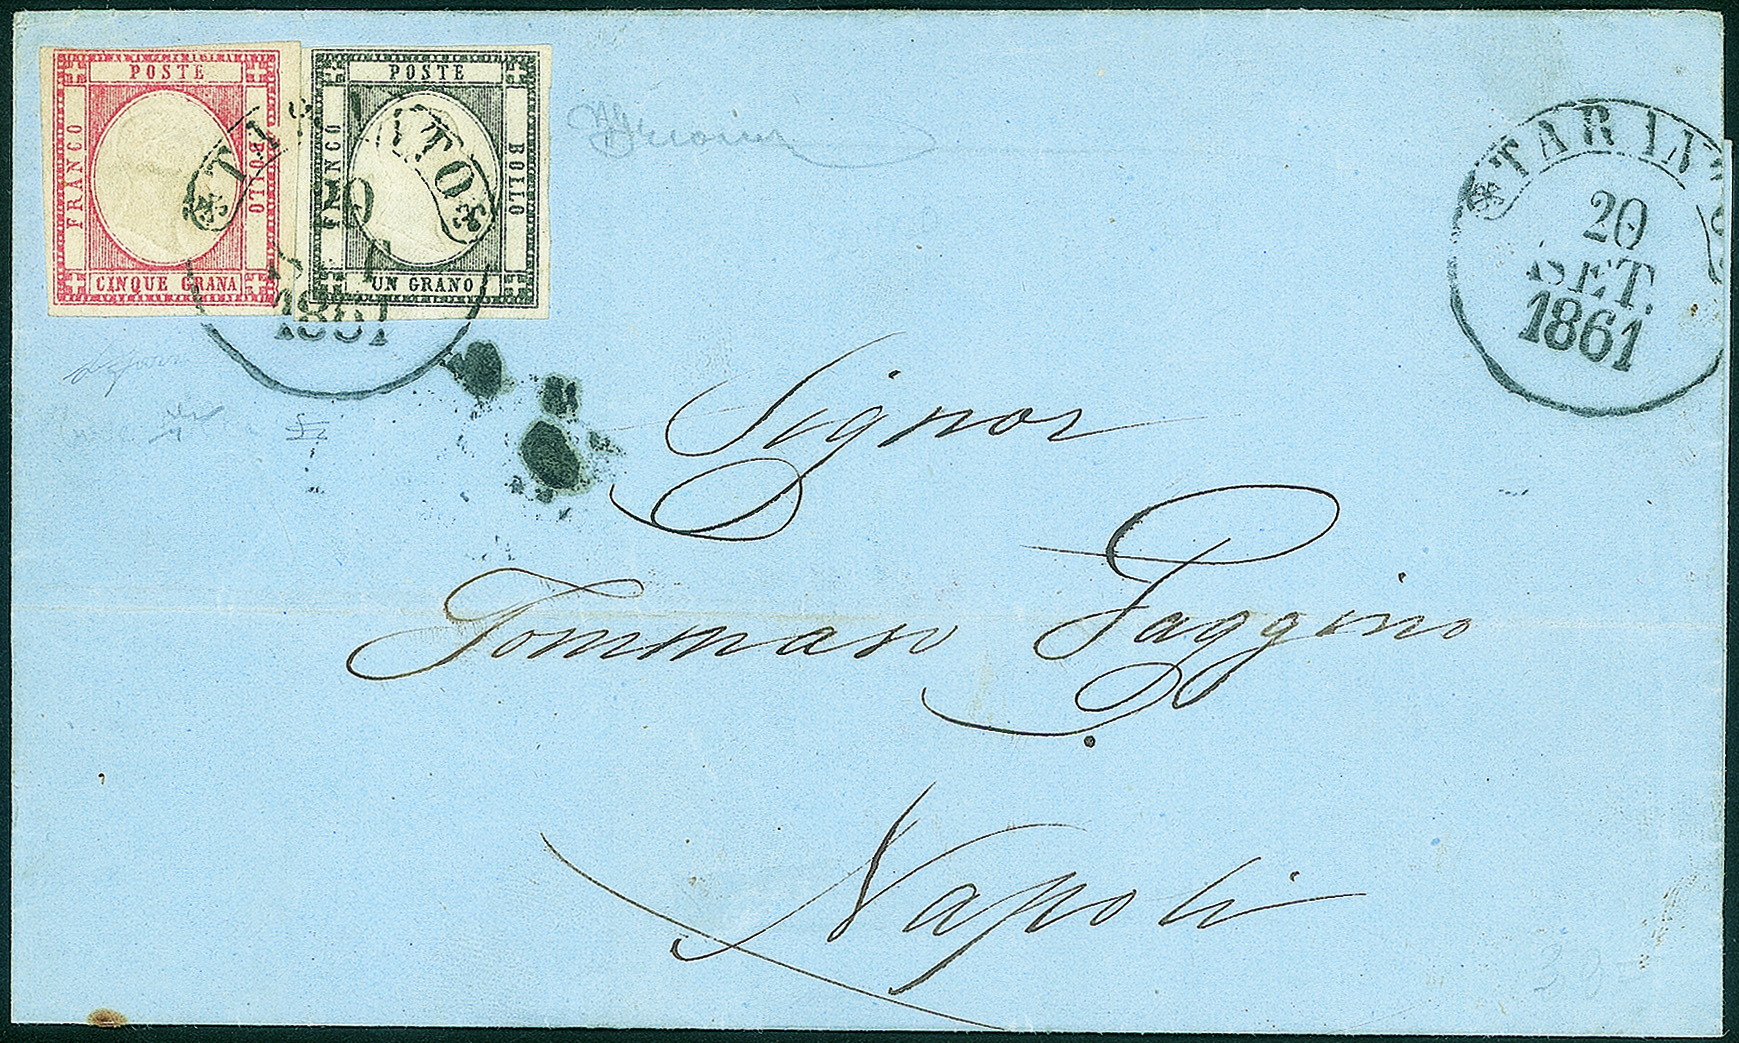 POSTE
FRANCO
BOLLO
CINQUE GRANA
POSTE
FRANCO
BOLLO
UN GRANO
TARANTO
20
SET
1861
TARANTO
20
SET.
1861
Signor
Tommaso Faggino
Napoli